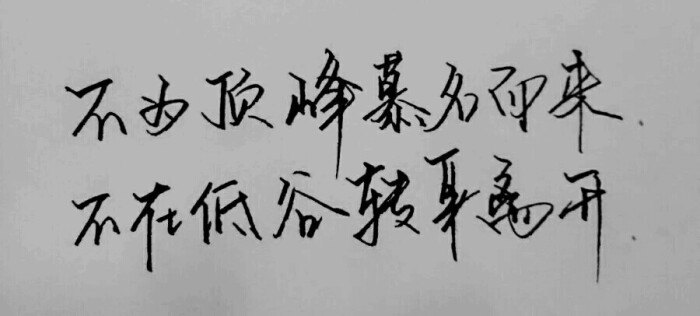 不为顶峰慕名而来.
不在低谷转身离开.